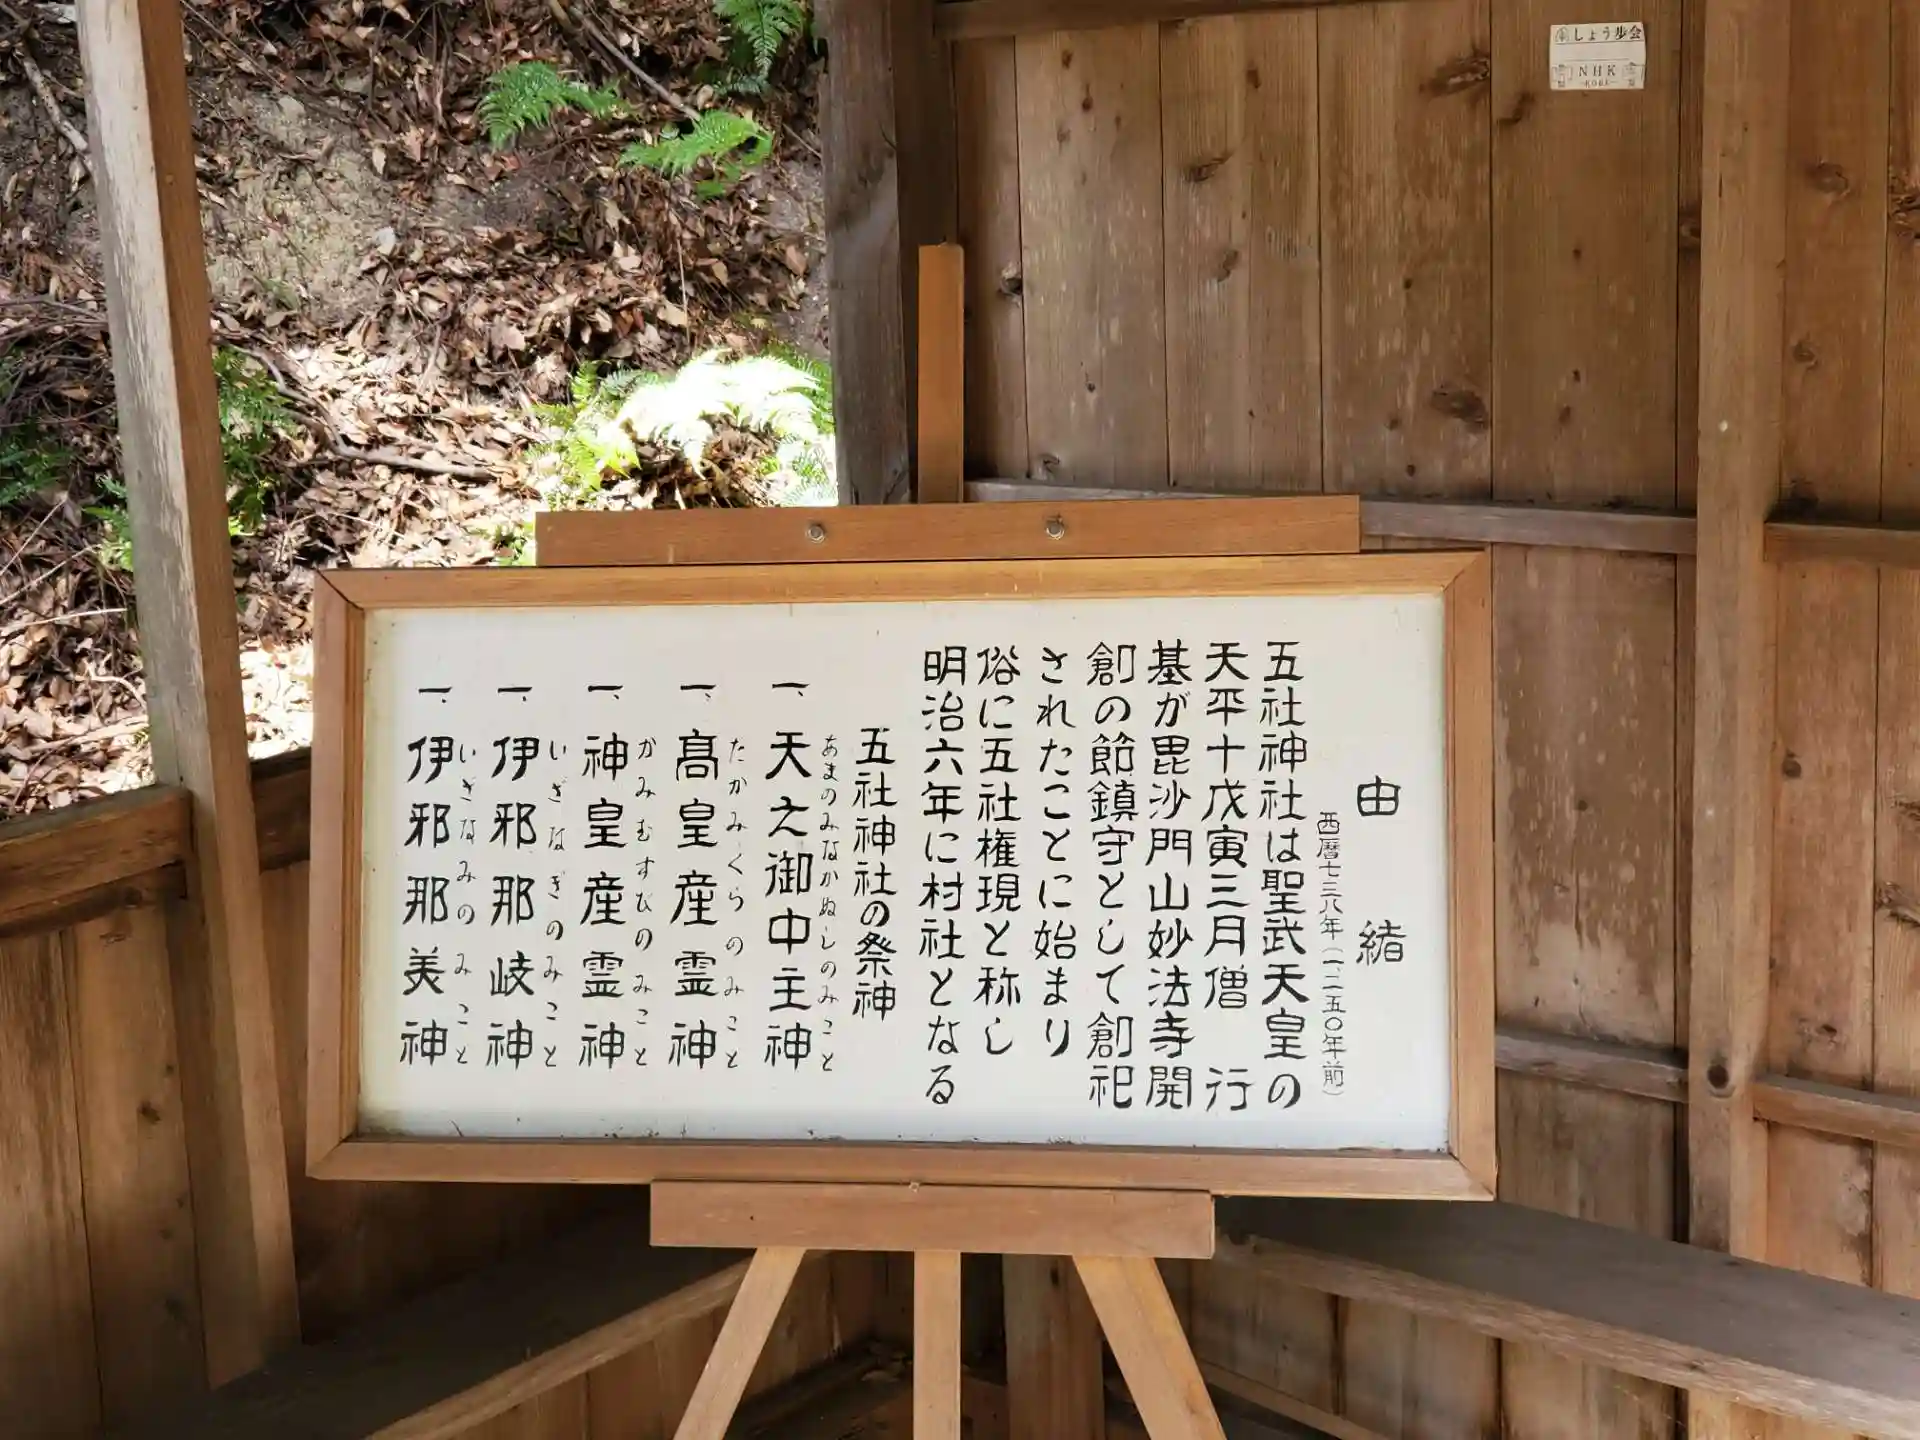 由緒
西暦七三八年(一、二五〇年前)
五社神社は聖武天皇の
天平十戊寅三月僧 行
基が毘沙門山妙法寺開
創の節鎮守として創祀
されたことに始まり
俗に五社権現と称し
明治六年に村社となる
五社神社の祭神
あまのみなかぬしのみこと
一、天之御中主神
たかみくらのみこと
一、髙皇産霊神
かみむすびのみこと
一、神皇産霊神
いざなぎのみこと
一、伊邪那岐神
いざなみのみこと
一、伊邪那美神
しょう歩会
NHK
KOBE